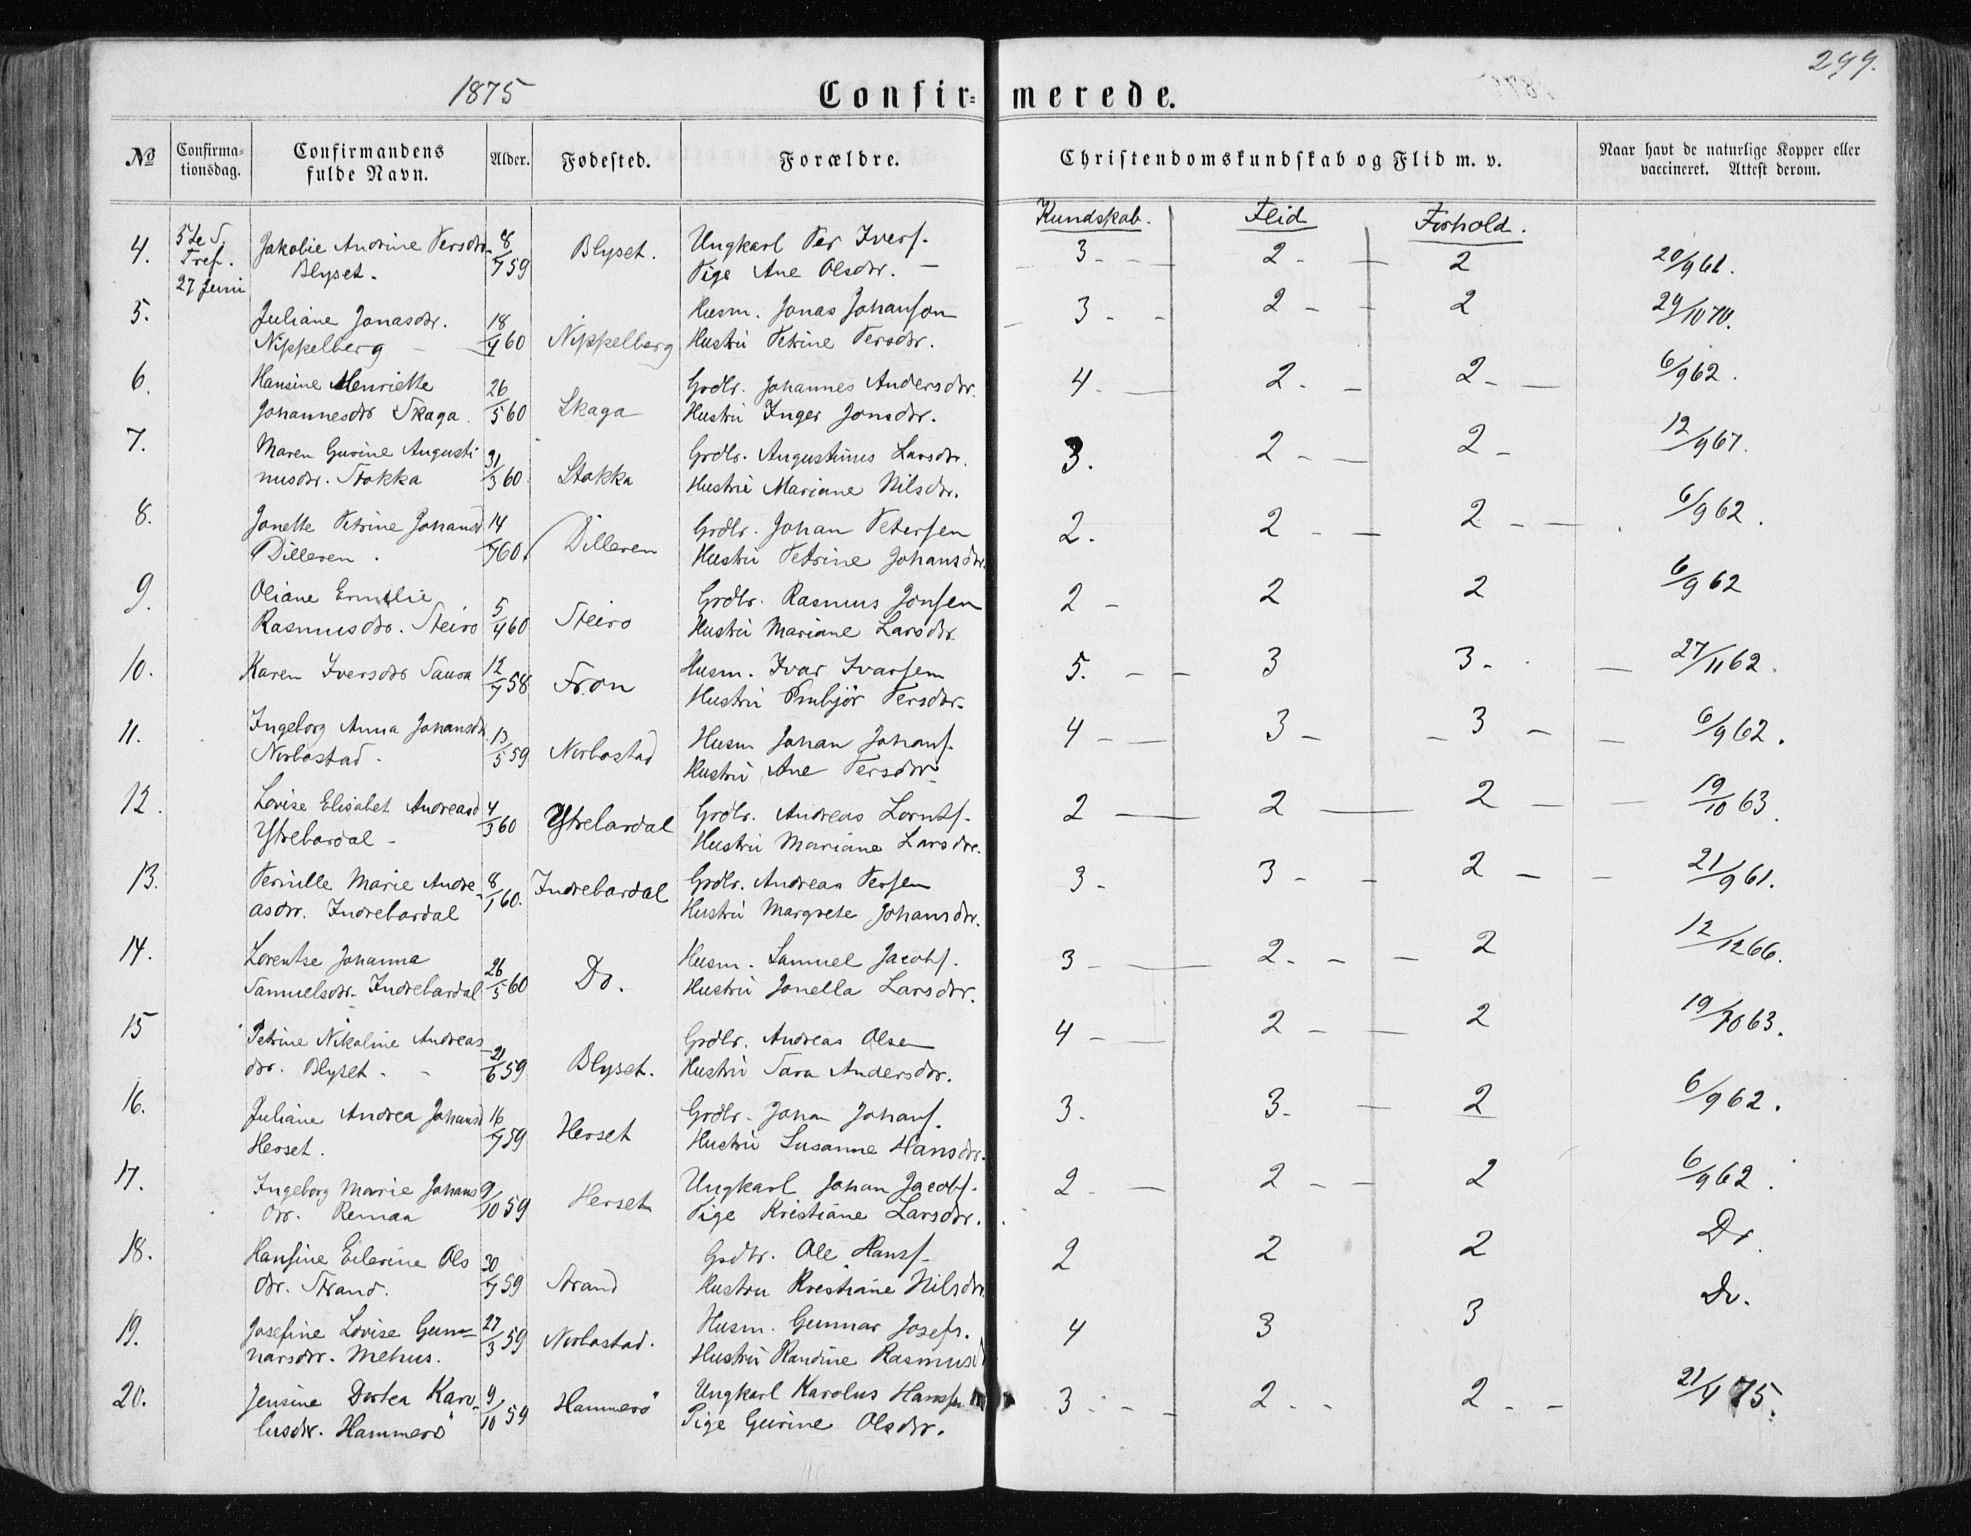 299.
1875 Confirmerede.
№ Confirmationsdag. Confirmandens fulde Navn. Alder. Fødested. Forældre. Christendomskundskab og Flid m. v. Naar havt de naturlige Kopper eller vaccineret. Attest derom.
Kundskab. Flid Forhold.
4. 5te S. Tref. 27 Juni Jakobie Andrine Persdtr. Blyset. 8/7 59 Blyset. Ungkarl Per Ivers. Pige Ane Olsdtr. 3 2 2 20/9 61.
5. Juliane Jonasdtr. Nippelberg 18/4 60 Nippelberg Husm. Jonas Johanson Hustru Petrine Persdtr. 3 2 2 29/10 70.
6. Hansine Henriette Johannesdtr Skaga. 26/5 60 Skaga Grdbr. Johannes Andersdtr. Hustru Inger Jonsdtr. 4 2 2 6/9 62.
7. Maren Gurine Augustinusdtr. Stokka 31/3 60. Stokka Grdbr. Augustinus Larsdtr. Hustru Mariane Nilsdtr. 3. 2 2 12/9 67.
8. Jonette Petrine Johansd Dilleren. 14/7 60. Dilleren Grdbr. Johan Petersen Hustru Petrine Johansdtr. 2. 2 2 6/9 62.
9. Oliane Emelie Rasmusdtr. Steiro 5/4 60 Steiro Grdbr. Rasmus Jonsen Hustru Mariane Larsdtr. 2 2 2 6/9 62
10. Karen Iversdtr Sausa 12/7 58 Fron Husm. Ivar Ivarsen Hustru Embjør Persdtr. 5. 3 3 27/11 62.
11. Ingeborg Anna Johansdtr. Norbostad. 13/5 59 Norbostad Husm Johan Johans. Hustru Ane Persdtr 4 3 3 6/9 62.
12. Lovise Elisabet Andreasd Ytrebardal 4/3 60 Ytrebardal Grdbr. Andreas Lornts. Hustru Mariane Larsdtr. 2 2 2 19/10 63.
13. Pernille Marie Andreasdtr. Indrebardal 8/1 60. Indrebardal Grdbr. Andreas Persen Hustru Margrete Johansdtr. 3 3 2 21/9 61.
14. Lorentse Johanna Samuelsdtr. Indrebardal 26/5 60 Do. Husm. Samuel Jacobs. Hustru Jonella Larsdtr. 3 2 2 12/12 66.
15 Petrine Nikoline Andreasdtr. Blyset. 21/6 59 Blyset. Grdbr. Andreas Olsen Hustru Sara Andersdtr. 4 2 2 19/10 63.
16. Juliane Andrea Johansd Herset. 16/7 59 Herset Grdbr. Johan Johans. Hustru Susanne Hansdtr. 3. 3. 2 6/9 62.
17. Ingeborg Marie Johansdtr. Remaa 9/10 59 Herset Ungkarl Johan Jacobs. Pige Kristiane Larsdtr. 2 2 2 6/9 62.
18. Hansine Eilerine Olsdtr. Strand. 30/7 59 Strand Grdbr. Ole Hans. Hustru Kristiane Nilsdtr. 2 2 2 Do.
19. Josefine Lovise Gunnarsdtr. Mehus. 27/3 59 Norbostad. Husm. Gunnar Josefs. Hustru Randine Rasmusd 4 3 3 Do.
20. Jensine Dortea Karolusdtr. Hammerö 9/10 59 Hammerö Ungkarl Karolus Hansen Pige Gurine Olsdtr. 3 2 2 21/4 75.